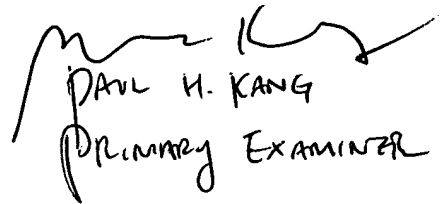 PAUL H. KANG
PRIMARY EXAMINER